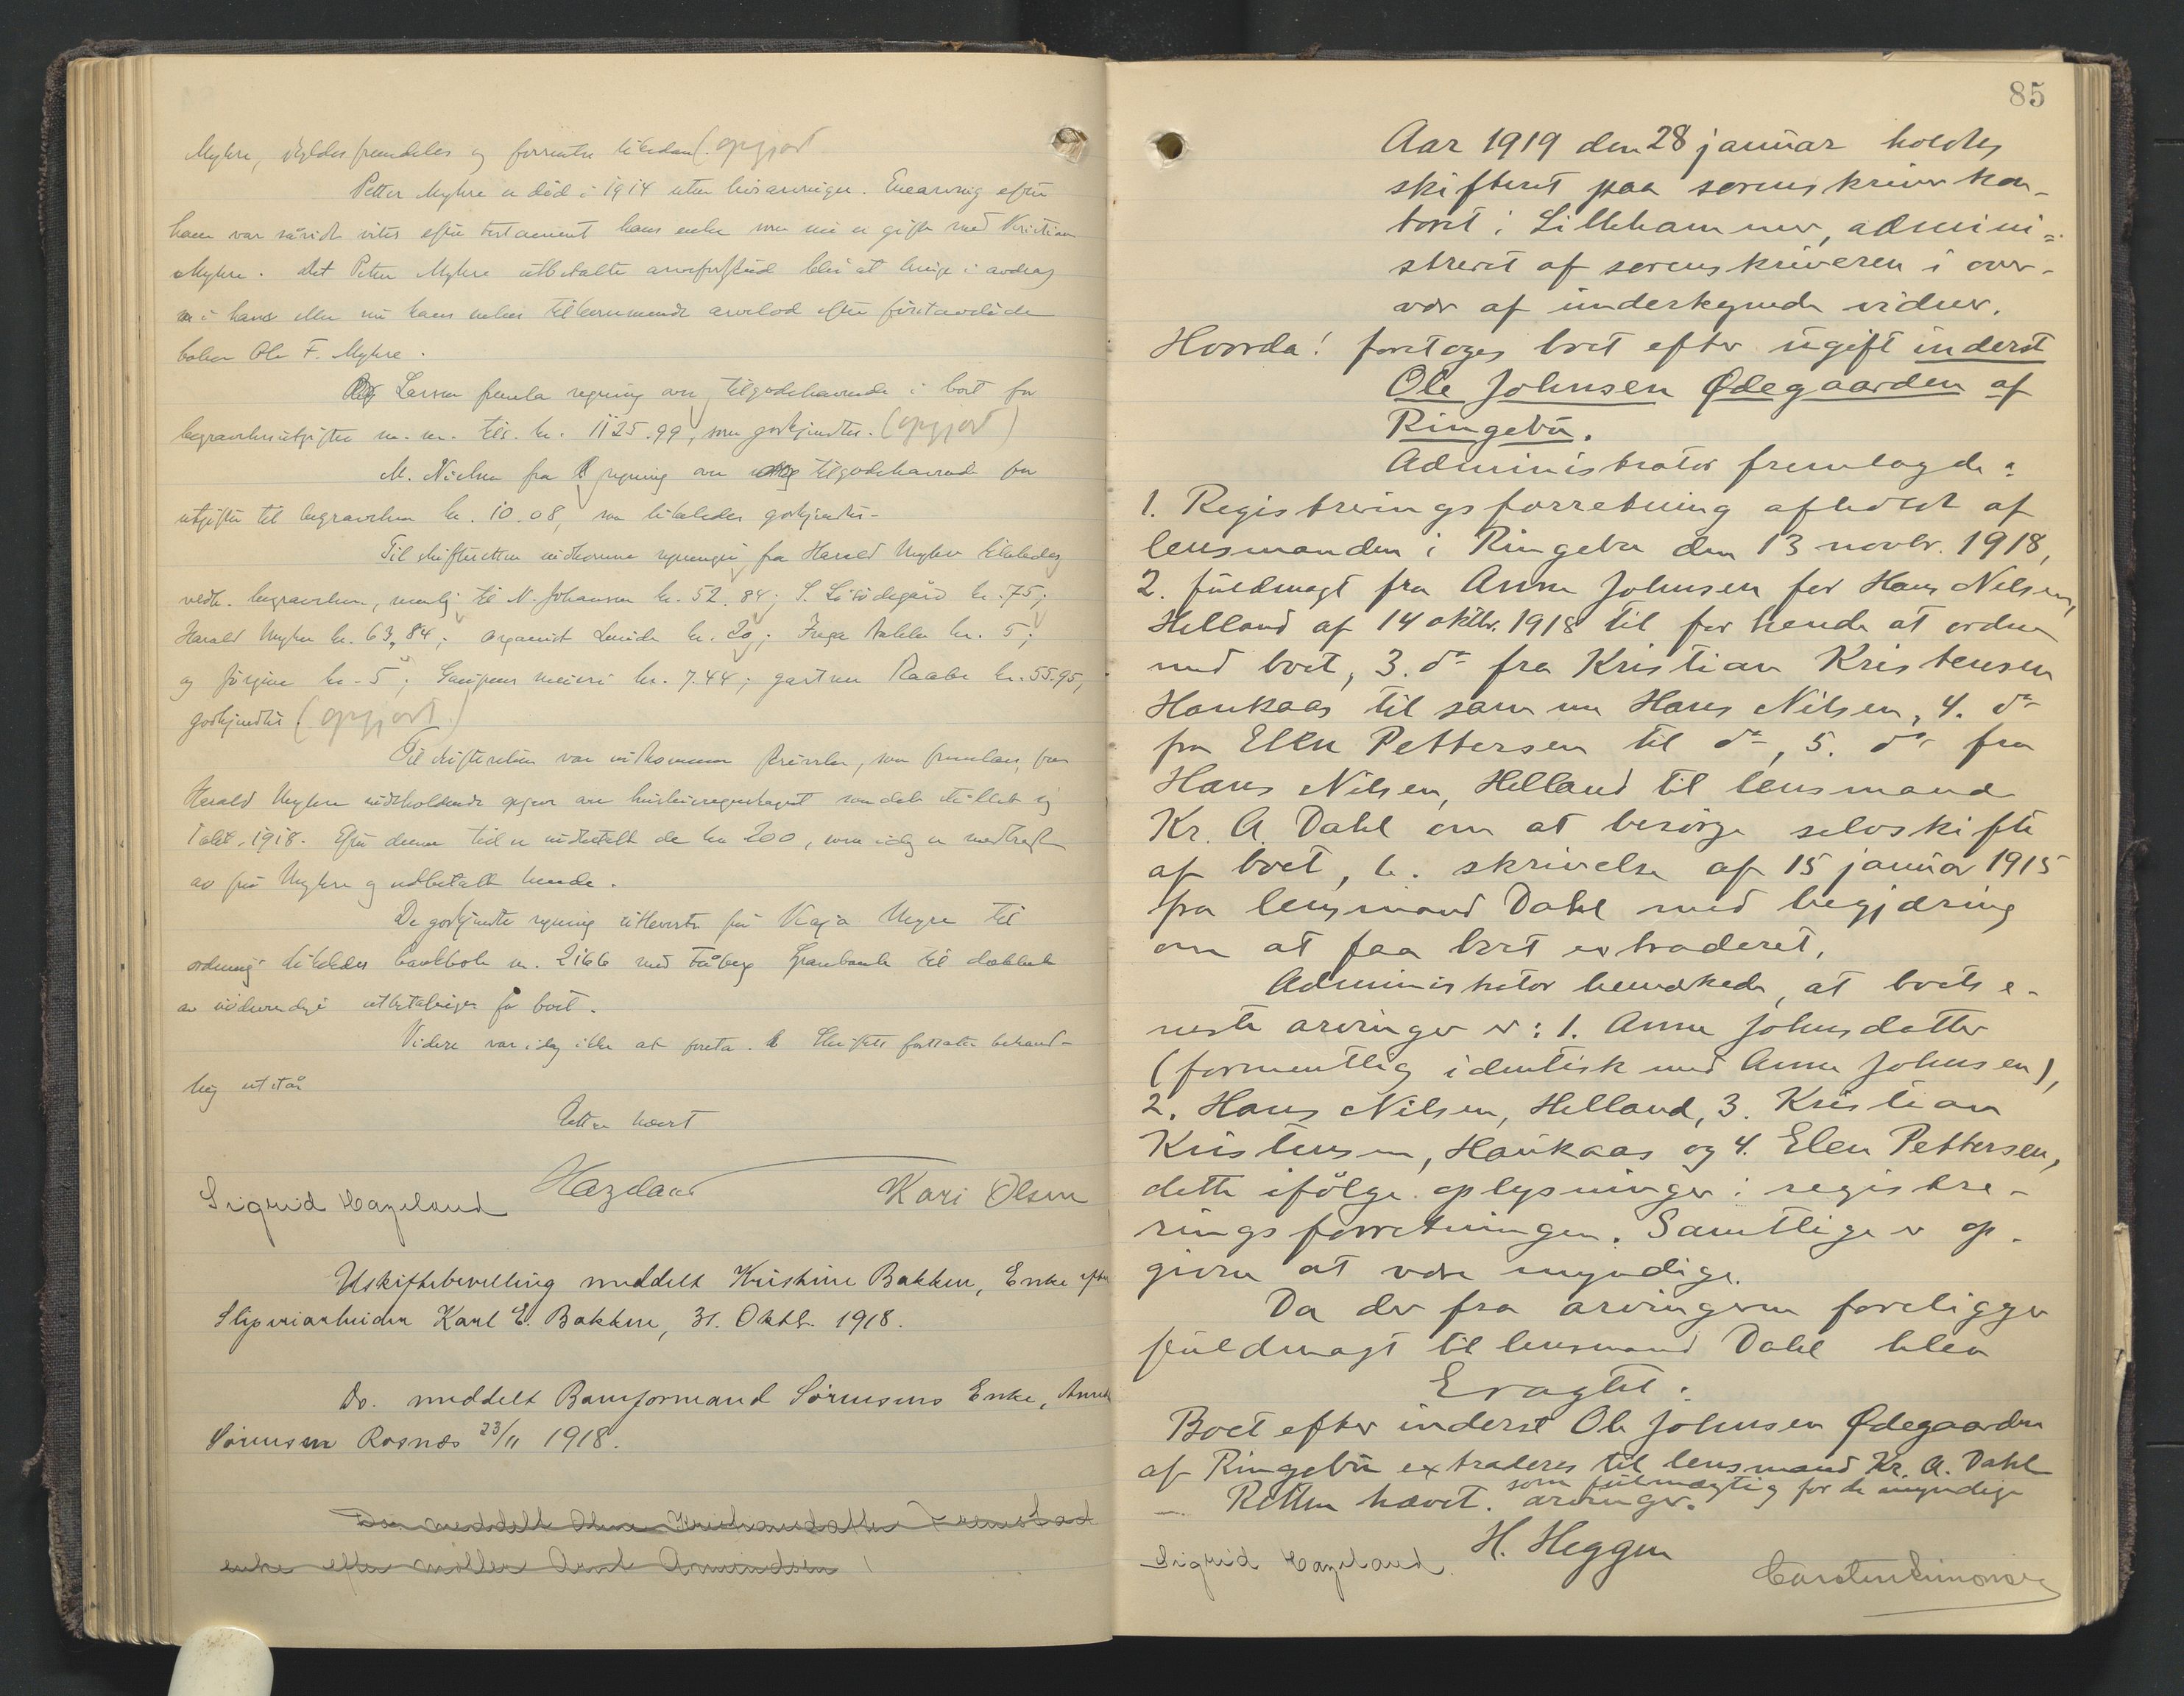 Myhre, skyldes fremdeles og forrentes likedan (opgjort
Petter Myhre er död i 1914 uten livsarvinger. Enearving efter
ham var såvidt vites efter testament hans enke som nu er gift med Kristian
Myhre. Det Petter Myhre utbetalte arveforskud blir at bringe i avdrag
i hans eller nu hans enkes tilkommende arvelod efter förstavdöde
Ole F. Myhre.
Larsen fremla regning over tilgodehavende i boet for
begravelsesutgifter m. m. tils. kr. 1125.99, som godkjendtes. (opgjort)
M. Nielsen fra regning over tilgodehavende for
utgifter til begravelsen kr. 10.08, som likeledes godkjendtes-
Til skifteretten indkomne regninger fra Harald Myhre likeledes
vedk. begravelsen, nemlig til N. Johansen kr. 52.84; S. kr. 75;
Harald Myhre kr. 63.84; organist kr. 20; kr. 5;
og Jörgine kr. 5; meieri kr. 7.44; gartner Raabe kr. 55.95,
godkjendtes. (opgjort)
Til skifteretten var indkommen skrivelse, som fremlaes, fra
Harald Myhre indeholdende opgjør over husleieregnskapet som det stillet sig
1 okt. 1918. Efter denne tid er indbetalt de kr 200, som idag er medbragt
av fru Myhre og utbetalt hende.
De godkjendte regning utlevertes fru Kaja Myhre til
ordning likeledes bankbok nr. 2166 med Fåberg Sparebank til dækkelse
av nödvendige utbetalinger for boet.
Videre var idag ikke at foreta. Skiftets fortsatte behand-
ling utstår
Retten hævet
Hazeland
Sigrid Hazeland Kari Olsen
Uskiftebevilling meddelt Kristine Bakken, Enke efter
Sliperiarbeider Karl E. Bakken, 31. Oktb. 1918.
Do. meddelt Banformand Sörensens Enke,
Sörensen Rosnæs 23/11 1918.
Do meddelt
enke efter möller Amundsen
85
Aar 1919 den 28 januar holdtes
skifteret paa sorenskriverkon-
toret i Lillehammer, admini=
streret af sorenskriveren i over-
vær af underskrevne vidner.
Hvorda! foretoges boet efter ugift inderst
Ole Johnsen Ødegaarden af
Ringebu.
Administrator fremlagde:
1. Registreringsforretning afholdt af
lensmanden i Ringebu den 13 novbr. 1918,
2. fuldmagt fra Anne Johnsen for Hans Nilsen,
Helland af 14 oktbr. 1918 til for hende at ordne
med boet, 3. do fra Kristian Kristensen
Haukaas til samme Hans Nilsen, 4. do
fra Elen Pettersen til do, 5. do fra
Hans Nilsen, Helland til lensmand
Kr. A. Dahl om at besörge selvskifte
af boet, 6. skrivelse af 15 januar 1915
fra lensmand Dahl med begjæring
om at faa boet extraderet.
Administrator bemærkede, at boets e-
neste arvinger er: 1. Anne Johnsdatter
(formentlig identisk med Anne Johnsen),
2. Hans Nilsen, Helland, 3. Kristian
Kristensen, Haukaas og 4. Elen Pettersen,
dette ifölge oplysninger i registre-
ringsforretningen. Samtlige er op-
givne at være myndige.
Da der fra arvingerne foreligger
fuldmagt til lensmand Dahl blev
Eragtet:
Boet efter inderst Ole Johnsen Ødegaarden
af Ringebu extraderes til lensmand Kr. A. Dahl
som fuldmægtig for de myndige
arvinger.
Retten hævet.
H. Heggen
Sigrid Hazeland. Carsten Simonsen